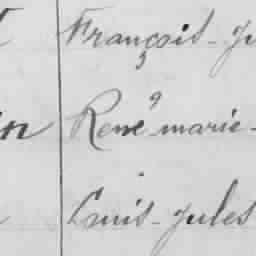 François - Ju
in René - marie -
Louis - Jules